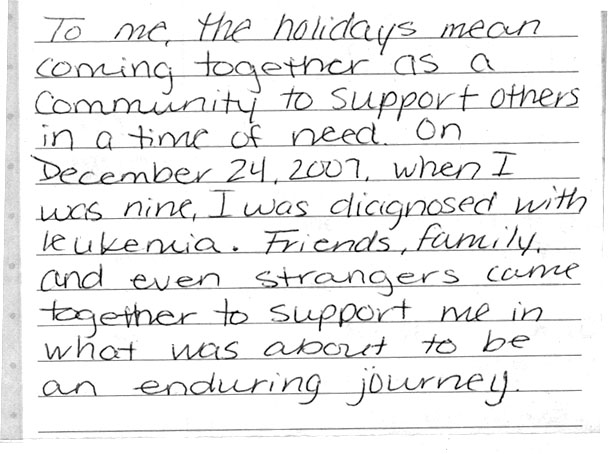 To me, the holidays mean
coming together as a
Community to support others
in a time of need. On
December 24, 2007, when I
was nine, I was diagnosed with
leukemia. Friends, family,
and even strangers came
together to support me in
what was about to be
an enduring journey.